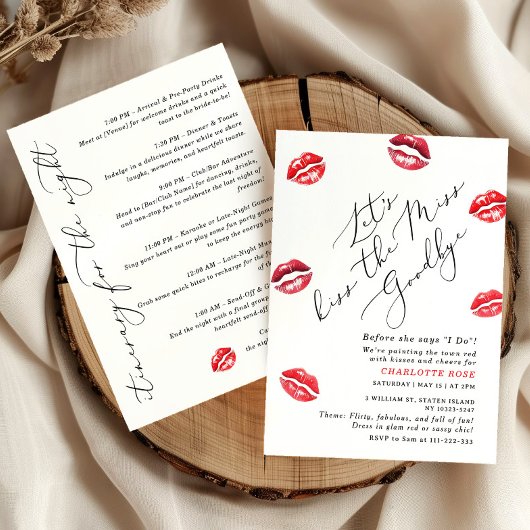 itinerary for the night
7:00 PM – Arrival & Pre-Party Drinks
Meet at [Venue] for welcome drinks and a quick
toast to the bride-to-be!
7:30 PM – Dinner & Toasts
Indulge in a delicious dinner while we share
laughs, memories, and heartfelt toasts.
9:00 PM – Club/Bar Adventure
Head to [Bar/Club Name] for dancing, drinks,
and non-stop fun to celebrate the last night of
freedom!
11:00 PM – Karaoke or Late-Night Games
Sing your heart out or play some fun party games
to keep the energy hig
12:00 AM – Late-Night Mun
Grab some quick bites to recharge for the f
of
1:00 AM – Send-Off & G
End the night with a final group
heartfelt send-off
Ca
the nig
Let's
kiss the Miss
Goodbye
Before she says "I Do"!
We're painting the town red
with kisses and cheers for
CHARLOTTE ROSE
SATURDAY | MAY 15 | AT 2PM
3 WILLIAM ST, STATEN ISLAND
NY 10323-5247
Theme: Flirty, fabulous, and full of fun!
Dress in glam red or sassy chic!
RSVP to Sam at 111-222-333